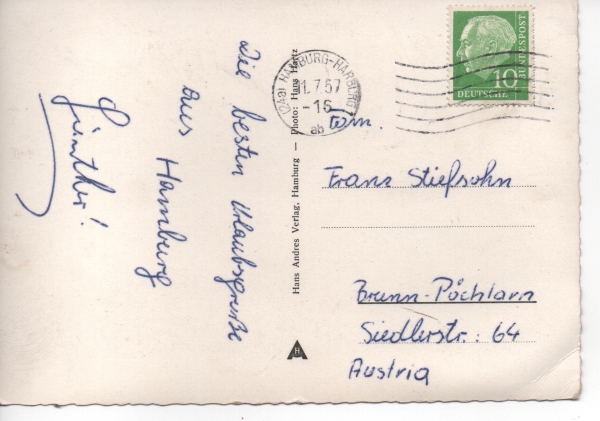 Die besten Urlaubsgrüße
aus Hamburg
Günther!
Hans Andres Verlag, Hamburg — Photo: Hans Hartz
H
(24a) HAMBURG-HARBURG
1.7.57
-16
ab
10
DEUTSCHE
BUNDESPOST
Fam.
Franz Stiefsohn
Brunn-Pöchlarn
Siedlerstr.: 64
Austria